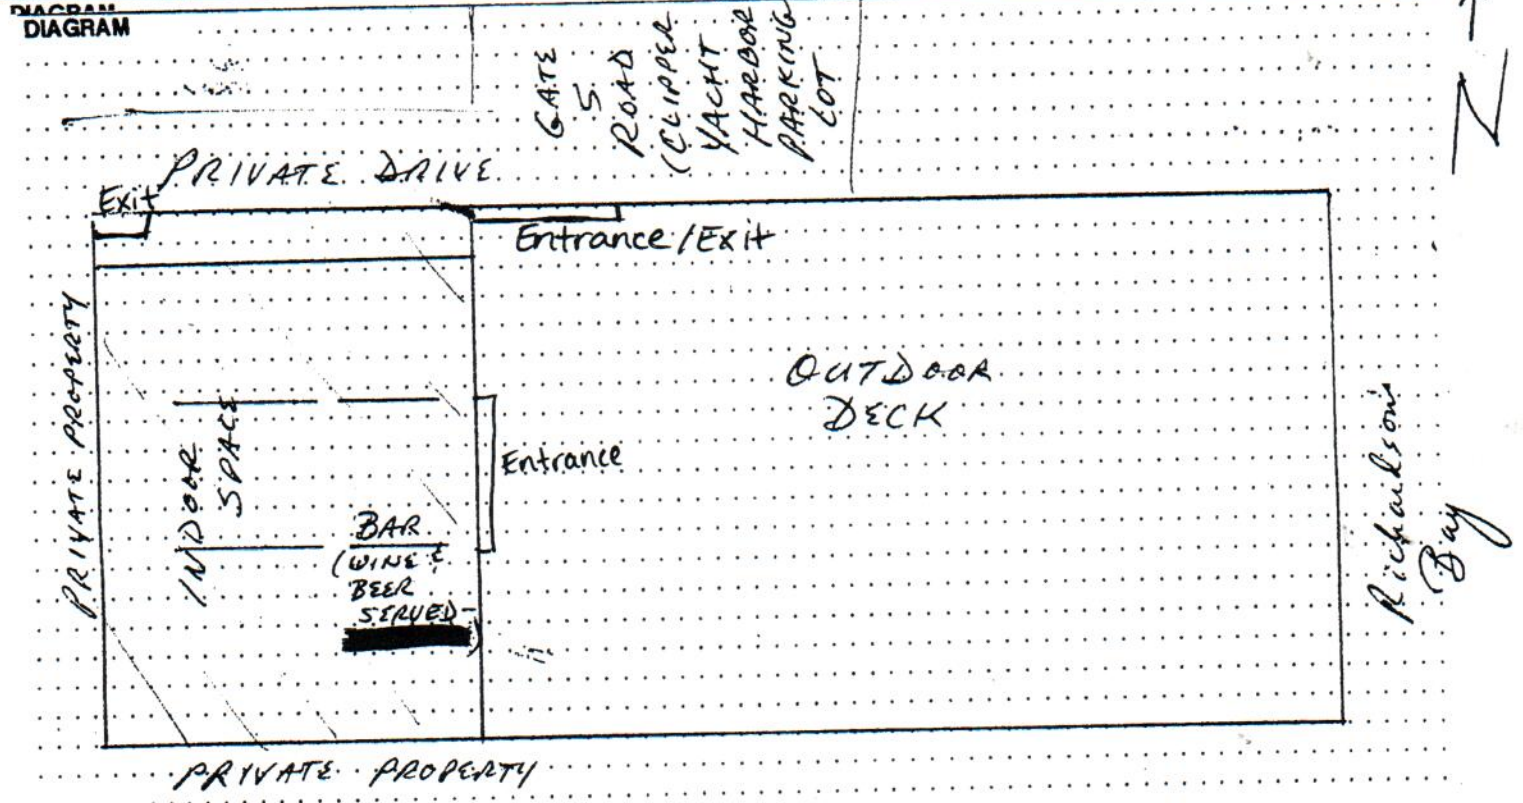 DIAGRAM
DIAGRAM
GATE
5
ROAD
(CLIPPER
YACHT
HARBOR
PARKING
LOT
N
PRIVATE DRIVE
Exit
Entrance/Exit
PRIVATE PROPERTY
OUTDOOR
DECK
INDOOR
SPACE
Entrance
BAR
(WINE &
BEER
SERVED-
)
Richardson's
Bay
PRIVATE PROPERTY